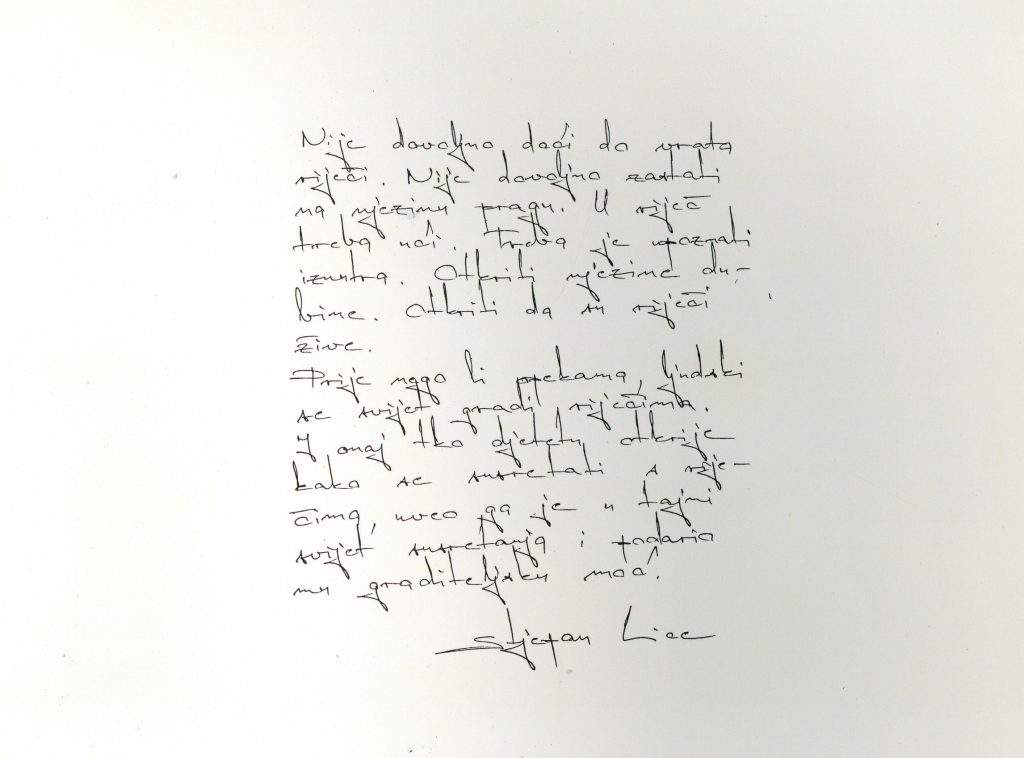 Nije dovoljno doći do vrata
riječi. Nije dovoljno zastati
na njezinu pragu. U riječ
treba ući. Treba je upoznati
iznutra. Otkriti njezine du-
bine. Otkriti da su riječi
žive.
Prije nego li pjekama, ljudski
se svijet gradi riječima.
I onaj tko djetetu otkrije
kako se susretati s rije-
čima, uveo ga je u tajni
svijet susretanja i podario
mu graditeljsku moć.
Stjepan Lice